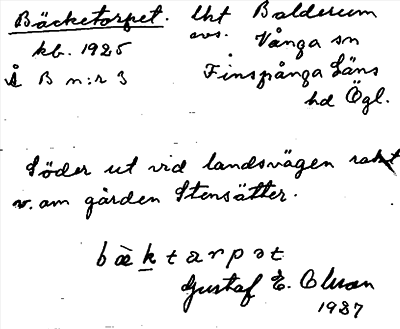 Bäcketorpet. lht Balderum
avs. Vånga sn
kb. 1925
Å B n:r 3 Finspånga Läns
hd Ögl.
Söder ut vid landsvägen rakt
v. om gården Stensätter.
bäktarpet
Gustaf E. Olson
1927